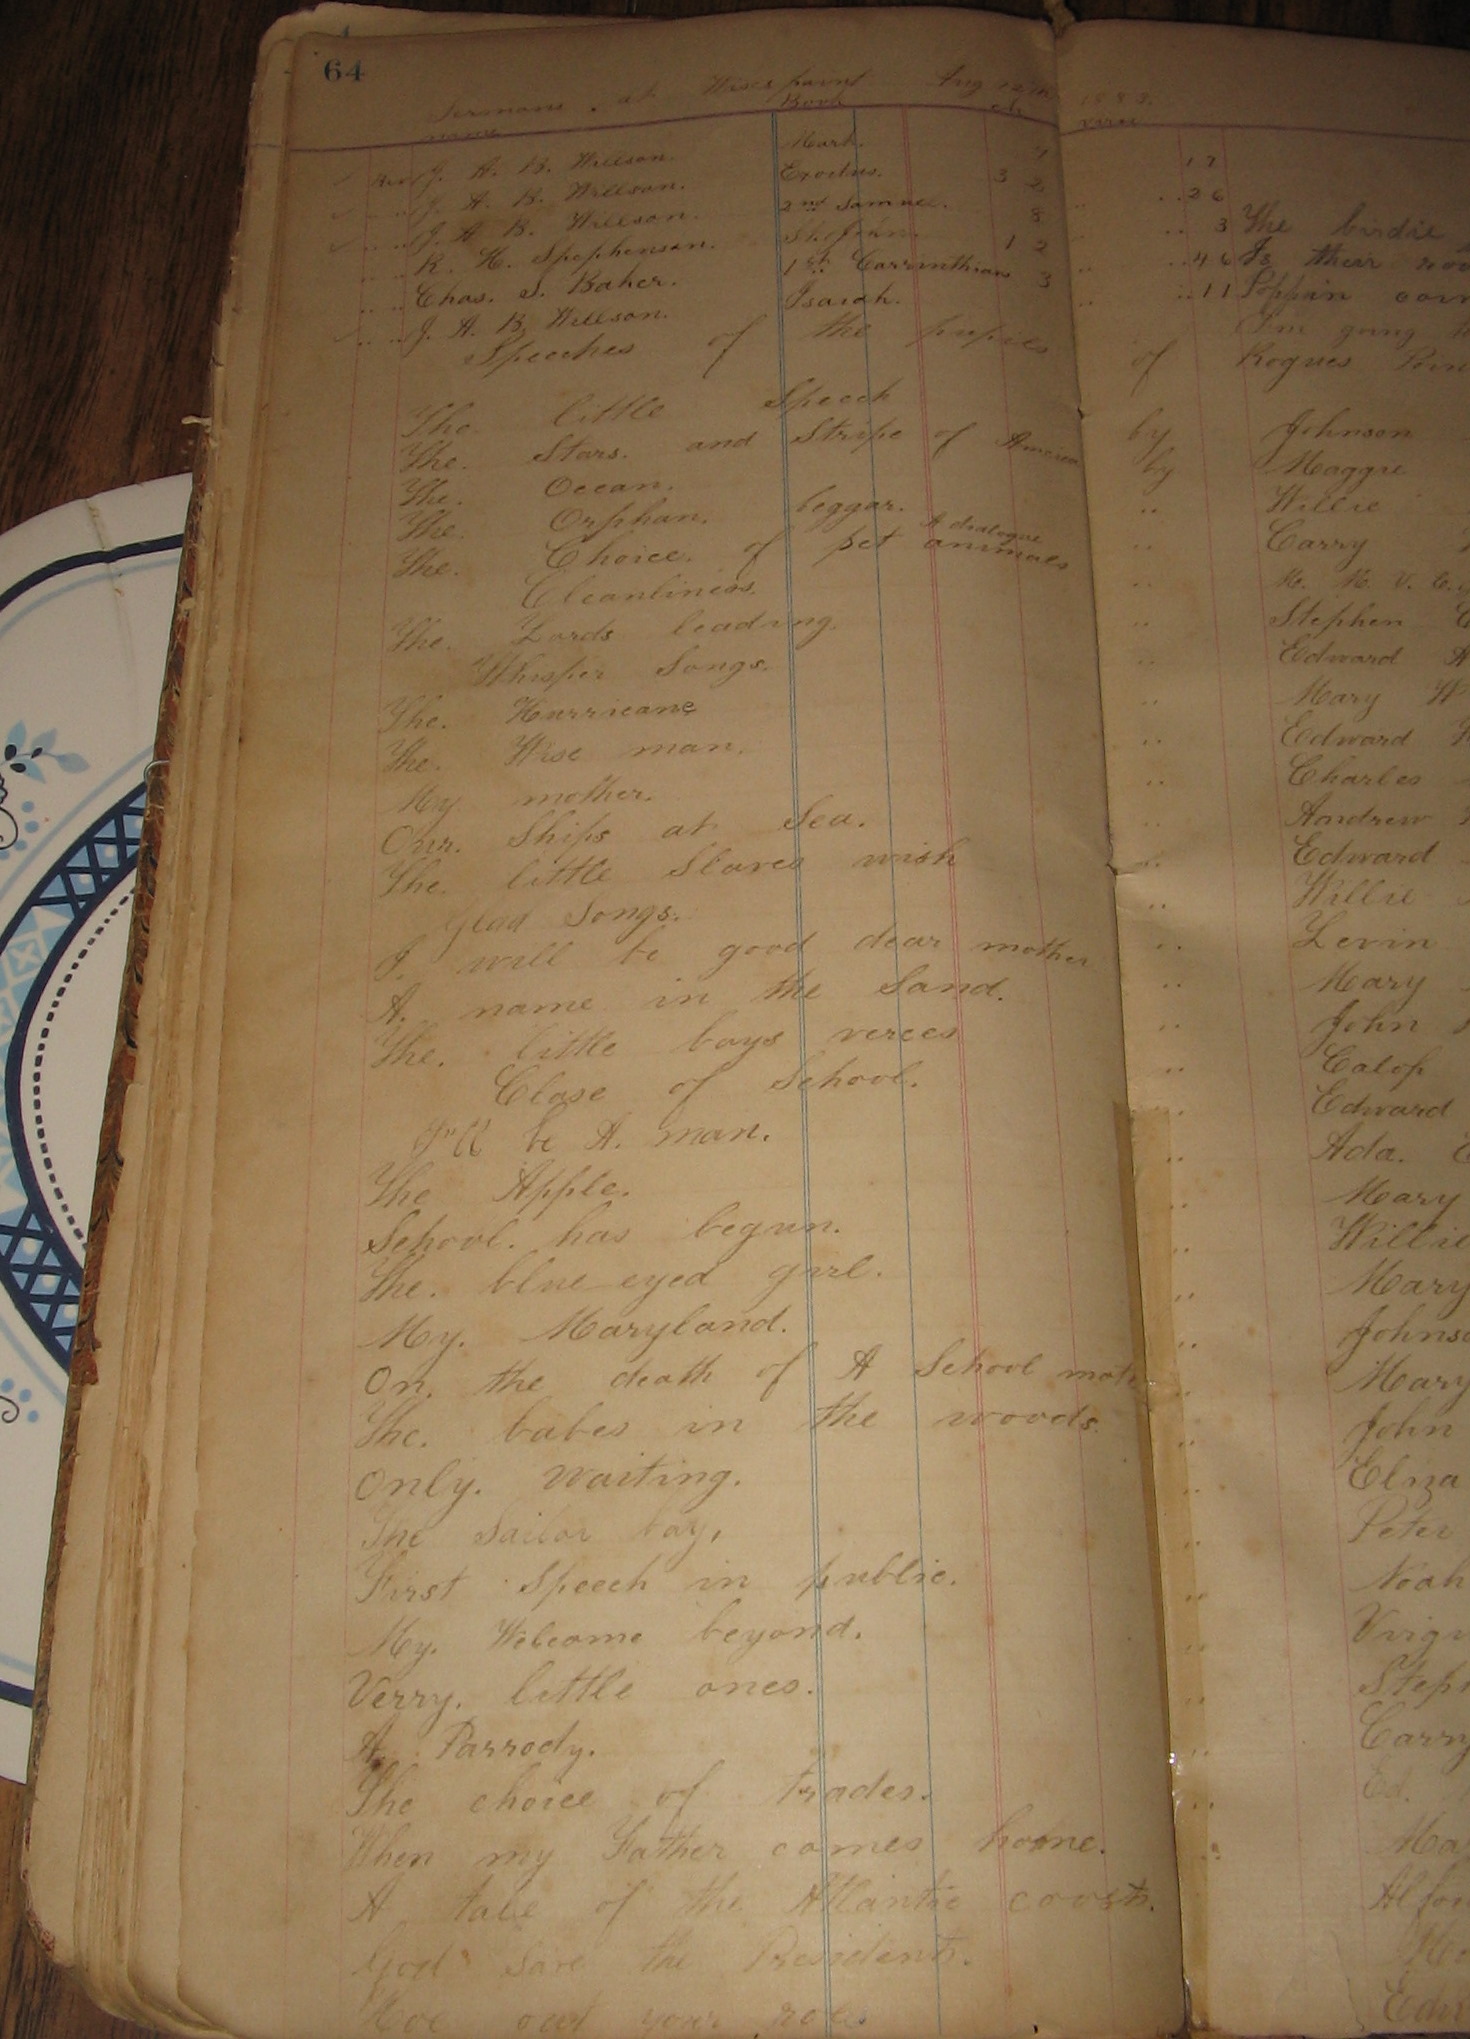 64
Sermons at Wises point Aug 1888.
name Book ch verse
Rev J. A. B. Willson. Mark. 4 17
.. J. A. B. Willson. Exodus. 32 .. 26
.. J. A. B. Willson. 2nd Samuel. 8 .. 3 The birdie
.. R. H. Stephenson. St. John. 12 .. 46 Is their
.. Chas. S. Baker. 1st Carrinthians 3 .. 11 Poppin corn
.. J. A. B. Willson. Isaiah. I'm going
Speeches of the pupils of Rogues
The. little Speech by Johnson
The. Stars. and Stripe of America by Maggie
The. Ocean. .. Willie
The. Orphan. beggar. .. Carry
The. Choice. of pet animals A dialogue .. M. M. V.
Cleanliness. .. Stephen
The. Lords leading. .. Edward
Whisper Songs. .. Mary
The. Hurricane .. Edward
The. Wise man. .. Charles
My mother. .. Andrew
Our. Ships at Sea. .. Edward
The. little Slaves wish .. Willie
Glad Songs. .. Levin
I. will be good dear mother .. Mary
A. name in the Sand. .. John
The. little boys verces .. Calop
Close of School. .. Edward
I'll be A. man. .. Ada.
The Apple. .. Mary
School. has begun. .. Willie
The. blue eyed girl. .. Mary
My. Maryland. .. Johnso
On. the death of A School mate .. Mary
The. babes in the woods. .. John
Only. waiting. .. Eliza
The Sailor boy, .. Peter
First Speech in public. .. Noah
My. Welcome beyond. .. Virgi
Verry. little ones. .. Steph
A. Parrody. .. Carry
The choice of trades. .. Ed.
When my Father comes home. .. Ma
A tale of the Atlantic coosts. Alfon
God save the Presidents.
Hoe out your rows Edw